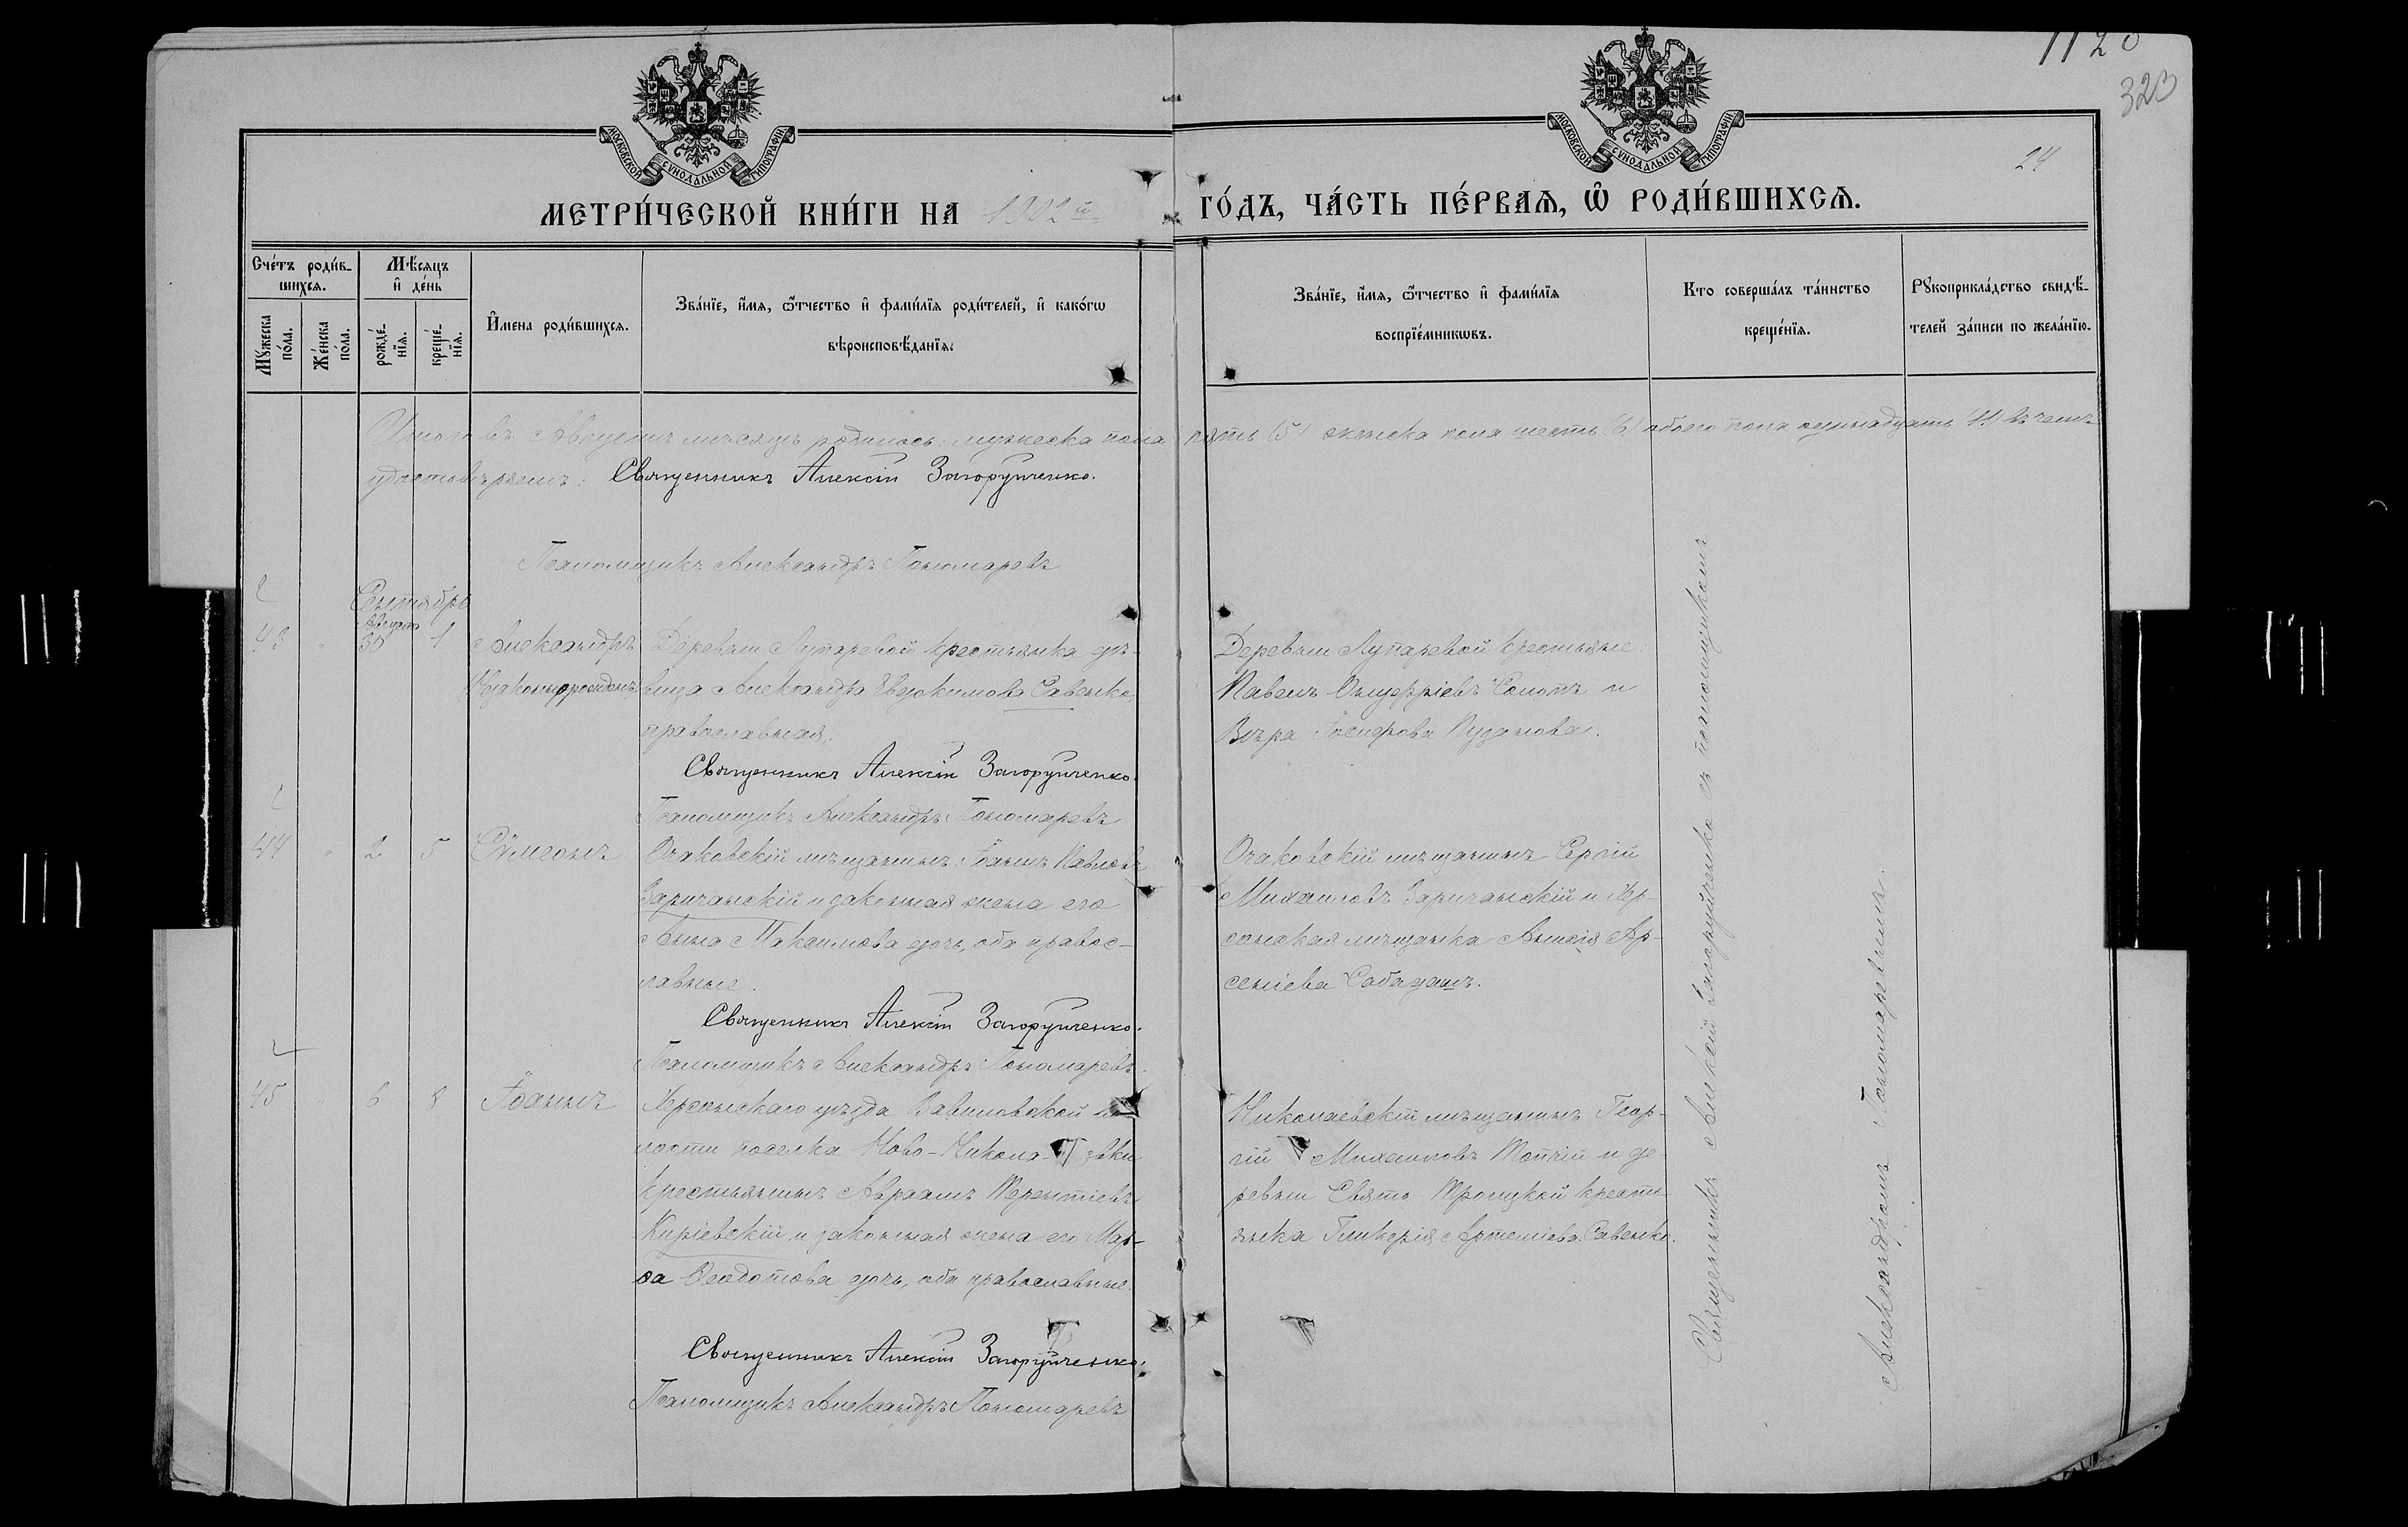 1120
320
24
МОСКОВСКОЙ СУНОДАЛЬНОЙ ТИПОГРАФІИ
МОСКОВСКОЙ СУНОДАЛЬНОЙ ТИПОГРАФІИ
МЕТРИ́ЧЕСКОЙ КНИ́ГИ НА 1902 й ГО́ДЪ, ЧА́СТЬ ПЕ́РВАѦ, Ѡ РОДИ́ВШИХСѦ.
Счётъ роди́в-
шихся.
Мꙋ́жеска
по́ла.
Же́нска
по́ла.
Мѣ́сяцъ
и҆ де́нь
рожде́-
нїя.
креще́-
нїя.
И҆мена роди́вшихся.
Зва́нїе, и҆́мя, ѻ҆́тчество и҆ фами́лїя роди́телей, и҆ како́гѡ
вѣроисповѣ́данїя.
Зва́нїе, и҆́мя, ѻ҆́тчество и҆ фами́лїя
воспрїе́мникѡвъ.
Кто соверша́лъ та́инство
креще́нїя.
Рꙋкоприкла́дство свидѣ́-
телей за́писи по жела́нїю.
Итого въ Августѣ мѣсяцѣ родилось: мужеска пола пять (5) женска пола шесть (6) обоего пола одинадцать (11) въ чемъ
удостовѣряемъ: Священникъ Алексій Загоруйченко.
Псаломщикъ Александръ Пономаревъ
Сентябрь
Августа
43 " 30 1 Александръ
Незаконнорожденъ
Деревни Лупаревой крестьянка дѣ-
вица Александра Евдокимова Савенко,
православная.
Деревни Лупаревой крестьяне:
Павелъ Онуфріевъ Сопотъ и
Вѣра Пузанова.
Священникъ Алексій Загоруйченко.
Псаломщикъ Александръ Пономаревъ
44 " 2 5 Сѵмеонъ
Очаковскій мѣщанинъ Іоаннъ Павловъ
Заричанскій и законная жена его
Анна Максимова дочь, оба правос-
лавные.
Очаковскій мѣщанинъ Сергій
Михаиловъ Заричанскій и Хер-
сонская мѣщанка Анисія Ар-
сеніева Сабадашъ.
Священникъ Алексій Загоруйченко.
Псаломщикъ Александръ Пономаревъ.
45 " 6 8 Іоаннъ
Херсонскаго уѣзда Вавиловской во-
лости поселка Ново-Николаевки
крестьянинъ Авраамъ Терентіевъ
Киріевскій и законная жена его Мар-
ѳа Ѳеодотова дочь, оба православные.
Николаевскій мѣщанинъ Геор-
гій Михаиловъ Топчій и де-
ревни Свято Троицкой кресть-
янка Гликерія Артеміева Савенко.
Священникъ Алексій Загоруйченко.
Псаломщикъ Александръ Пономаревъ
Священникъ Алексій Загоруйченко съ псаломщикомъ
Александромъ Пономаревымъ.